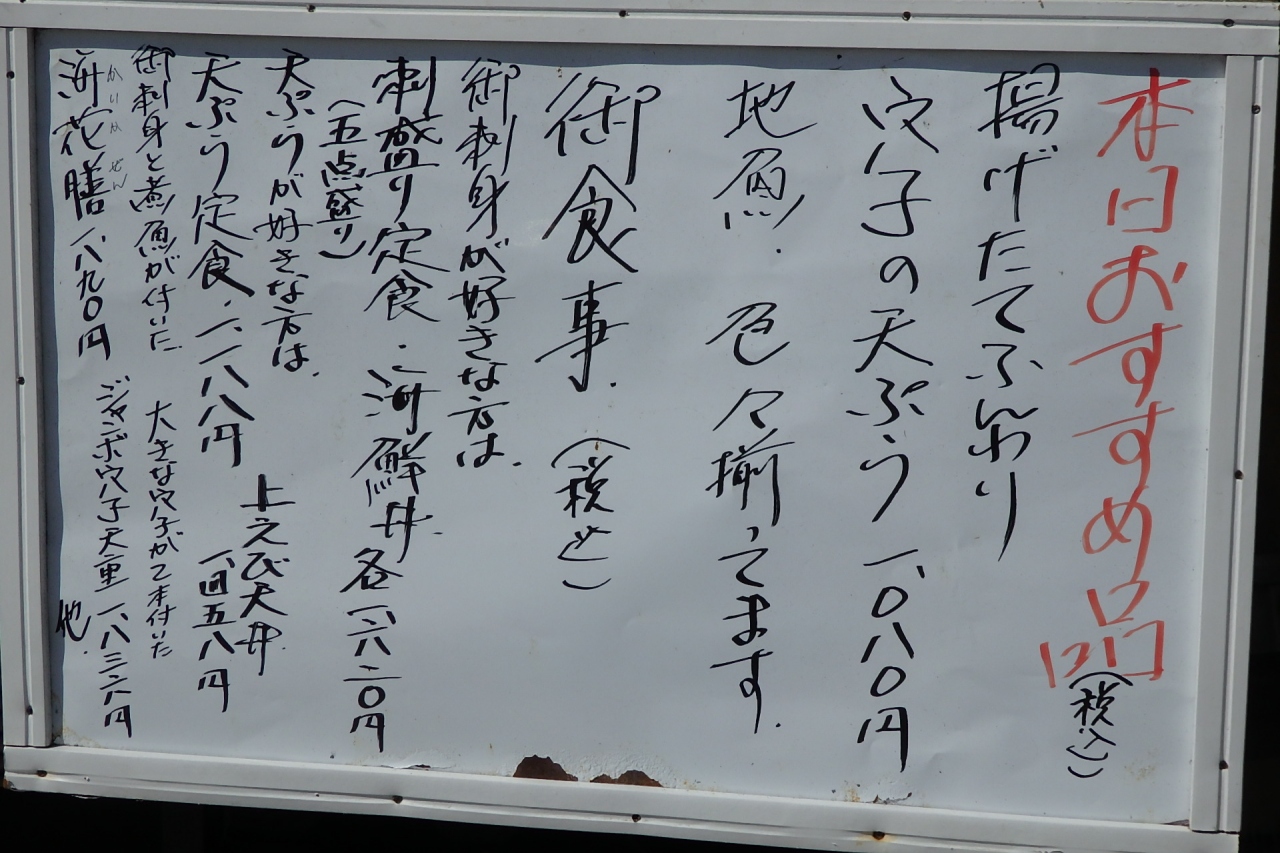 本日おすすめ品(税込)
揚げたてふんわり
穴子の天ぷら 一、〇八〇円
地魚.色々揃ってます.
御食事.(税込)
御刺身が好きな方は.
刺盛り定食・海鮮丼.各一、六二〇円
(五点盛り)
天ぷらが好きな方は.
天ぷら定食.一、一八八円
上えび天丼.
一、四五八円
御刺身と煮魚が付いた
海花膳 一、八九〇円
かいかぜん
大きな穴子が2本付いた
ジャンボ穴子天重 一、八三六円
他.